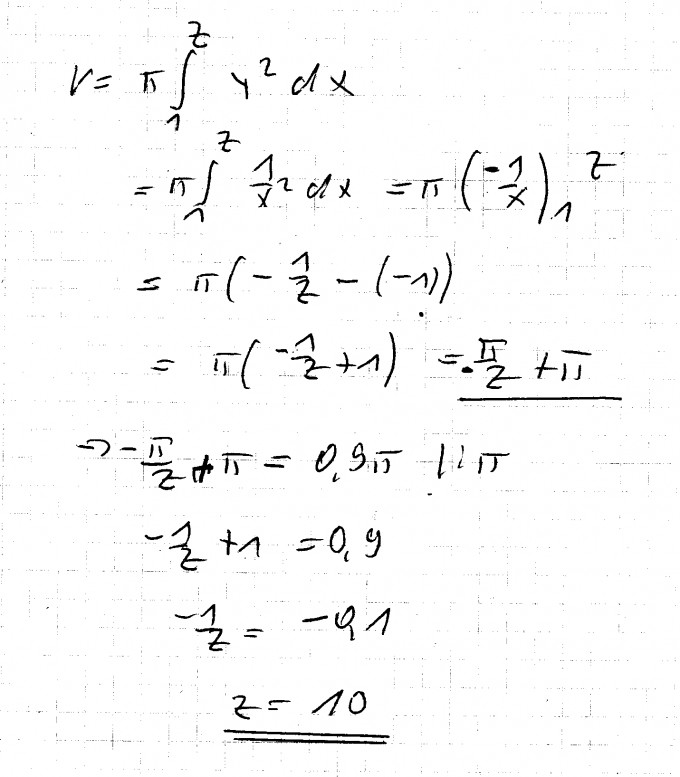 V = π ∫₁ᶻ y² dx
= π ∫₁ᶻ 1/x² dx = π (-1/x)₁ᶻ
= π(-1/z - (-1))
= π(-1/z + 1) = -π/z + π
→ -π/z + π = 0,9π |:π
-1/z + 1 = 0,9
-1/z = -0,1
z = 10